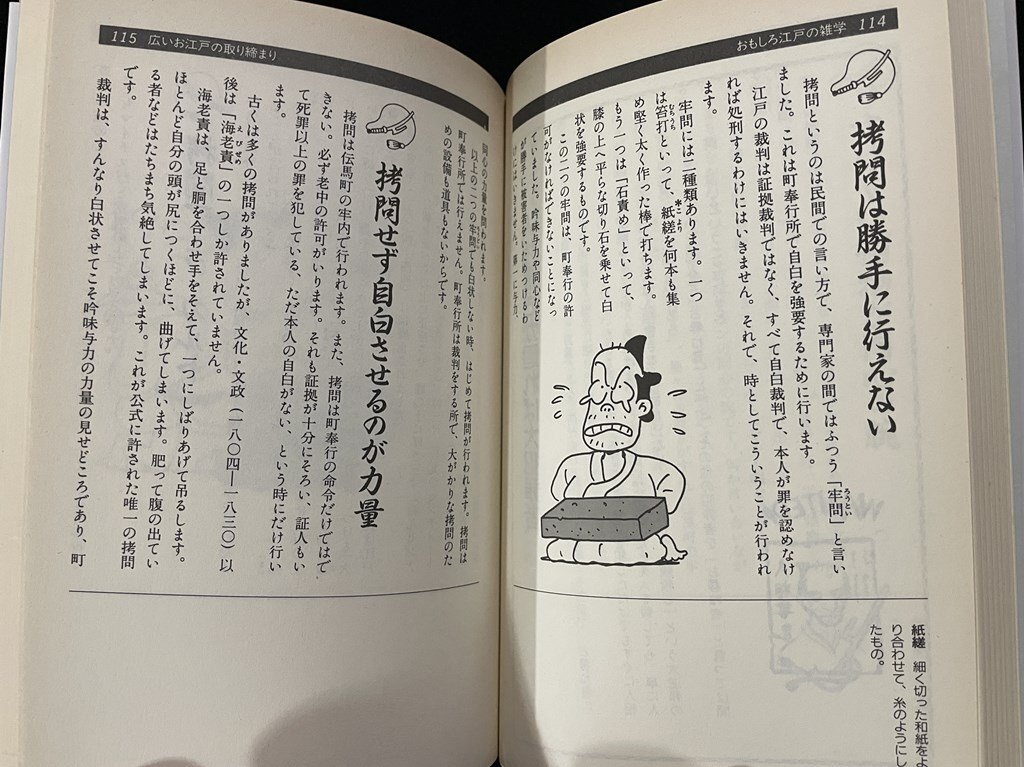 おもしろ江戸の雑学 114
拷問は勝手に行えない
拷問というのは民間での言い方で、専門家の間ではふつう「牢問」と言い
ろうとい
ました。これは町奉行所で自白を強要するために行います。
江戸の裁判は証拠裁判ではなく、すべて自白裁判で、本人が罪を認めなけ
れば処刑するわけにはいきません。それで、時としてこういうことが行われ
ます。
牢問には二種類あります。一つ
は笞打といって、紙縒を何本も集
むちうち
*こより
め堅く太く作った棒で打ちます。
もう一つは「石責め」といって、
膝の上へ平らな切り石を乗せて白
状を強要するものです。
この二つの牢問は、町奉行の許
可がなければできないことになっ
ていました。吟味与力や同心など
が勝手に被害者をいためつけるわ
けにはいきません。第一に与力、
紙縒 細く切った和紙をよ
り合わせて、糸のようにし
たもの。
115 広いお江戸の取り締まり
同心の力量を問われます。
以上の二つの牢問でも白状しない時、はじめて拷問が行われます。拷問は
町奉行所では行えません。町奉行所は裁判をする所で、大がかりな拷問のた
めの設備も道具もないからです。
拷問せず自白させるのが力量
拷問は伝馬町の牢内で行われます。また、拷問は町奉行の命令だけではで
きない。必ず老中の許可がいります。それも証拠が十分にそろい、証人もい
て死罪以上の罪を犯している、ただ本人の自白がない、という時にだけ行い
ます。
古くは多くの拷問がありましたが、文化・文政（一八〇四―一八三〇）以
後は「海老責」の一つしか許されていません。
えびぜめ
海老責は、足と胴を合わせ手をそえて、一つにしばりあげて吊るします。
ほとんど自分の頭が尻につくほどに、曲げてしまいます。肥って腹の出てい
る者などはたちまち気絶してしまいます。これが公式に許された唯一の拷問
です。
裁判は、すんなり白状させてこそ吟味与力の力量の見せどころであり、町